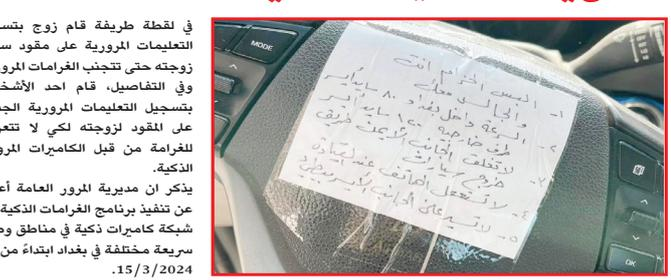 في لقطة طريفة قام زوج
التعليمات المرورية على مقود
زوجته حتى تتجنب الغرامات
وفي التفاصيل، قام احد
بتسجيل التعليمات المرورية
على المقود لزوجته لكي لا
للغرامة من قبل الكاميرات
الذكية.
يذكر ان مديرية المرور العامة
عن تنفيذ برنامج الغرامات الذكية
شبكة كاميرات ذكية في مناطق
سريعة مختلفة في بغداد ابتداءً من
15/3/2024.
MODE
١- البس الحزام انت
والجالس معك
٢- السرعة داخل بغداد ٨٠ سايد ايسر
طرق خارجية ١٠٠ سايد ايسر
٣- لا تغلق الجانب الايمن طريق
خروج سيارات
٤- لا تستعمل الهاتف عند القيادة
٥- لا تسير على الجانب الايسر ببطء
OK